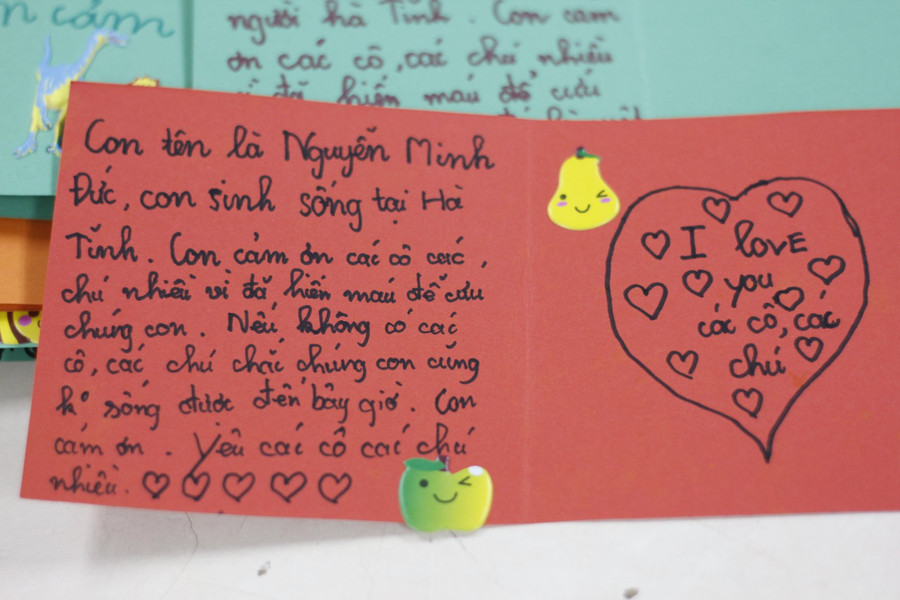 cảm
người hà Tĩnh. Con cảm
ơn các cô, các chú nhiều
vì đã hiến máu để cứu
Con tên là Nguyễn Minh
Đức, con sinh sống tại Hà
Tĩnh. Con cảm ơn các cô các,
chú nhiều vì đã hiến máu để cứu
chúng con. Nếu không có các
cô, các chú chắc chúng con cũng
ko sống được đến bây giờ. Con
cám ơn. Yêu các cô các chú
nhiều. ♡♡♡♡♡
I lovE
you
các cô, các
chú